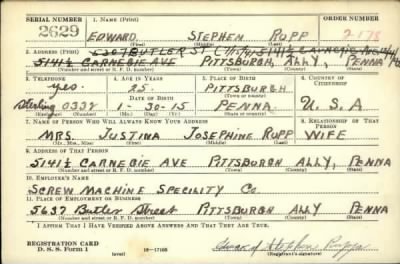 SERIAL NUMBER 1. NAME (Print) ORDER NUMBER
2629 EDWARD STEPHEN RUPP 2178
(First) (Middle) (Last)
2. ADDRESS (Print) 5307 BUTLER ST 5141½ CARNEGIE AVE
5141½ CARNEGIE AVE PITTSBURGH, ALLY, PENNA
(Number and street or R. F. D. number) (Town) (County) (State)
3. TELEPHONE 4. AGE IN YEARS 5. PLACE OF BIRTH 6. COUNTRY OF CITIZENSHIP
yes. 25. PITTSBURGH
DATE OF BIRTH (Town or county)
Sterling 0332 1-30-15 PENNA. U.S.A
(Mo.) (Day) (Yr.) (State or country)
7. NAME OF PERSON WHO WILL ALWAYS KNOW YOUR ADDRESS 8. RELATIONSHIP OF THAT PERSON
MRS. JUSTINA JOSEPHINE RUPP WIFE
(Mr., Mrs., Miss) (First) (Middle) (Last)
9. ADDRESS OF THAT PERSON
5141½ CARNEGIE AVE PITTSBURGH ALLY, PENNA
(Number and street or R. F. D. number) (Town) (County) (State)
10. EMPLOYER'S NAME
SCREW MACHINE SPECIALTY Co.
11. PLACE OF EMPLOYMENT OR BUSINESS
5637 Butler Street PITTSBURGH ALLY PENNA
(Number and street or R. F. D. number) (Town) (County) (State)
I AFFIRM THAT I HAVE VERIFIED ABOVE ANSWERS AND THAT THEY ARE TRUE.
REGISTRATION CARD
D. S. S. Form 1 16—17105 Edward Stephen Rupp
(over) (Registrant's signature)